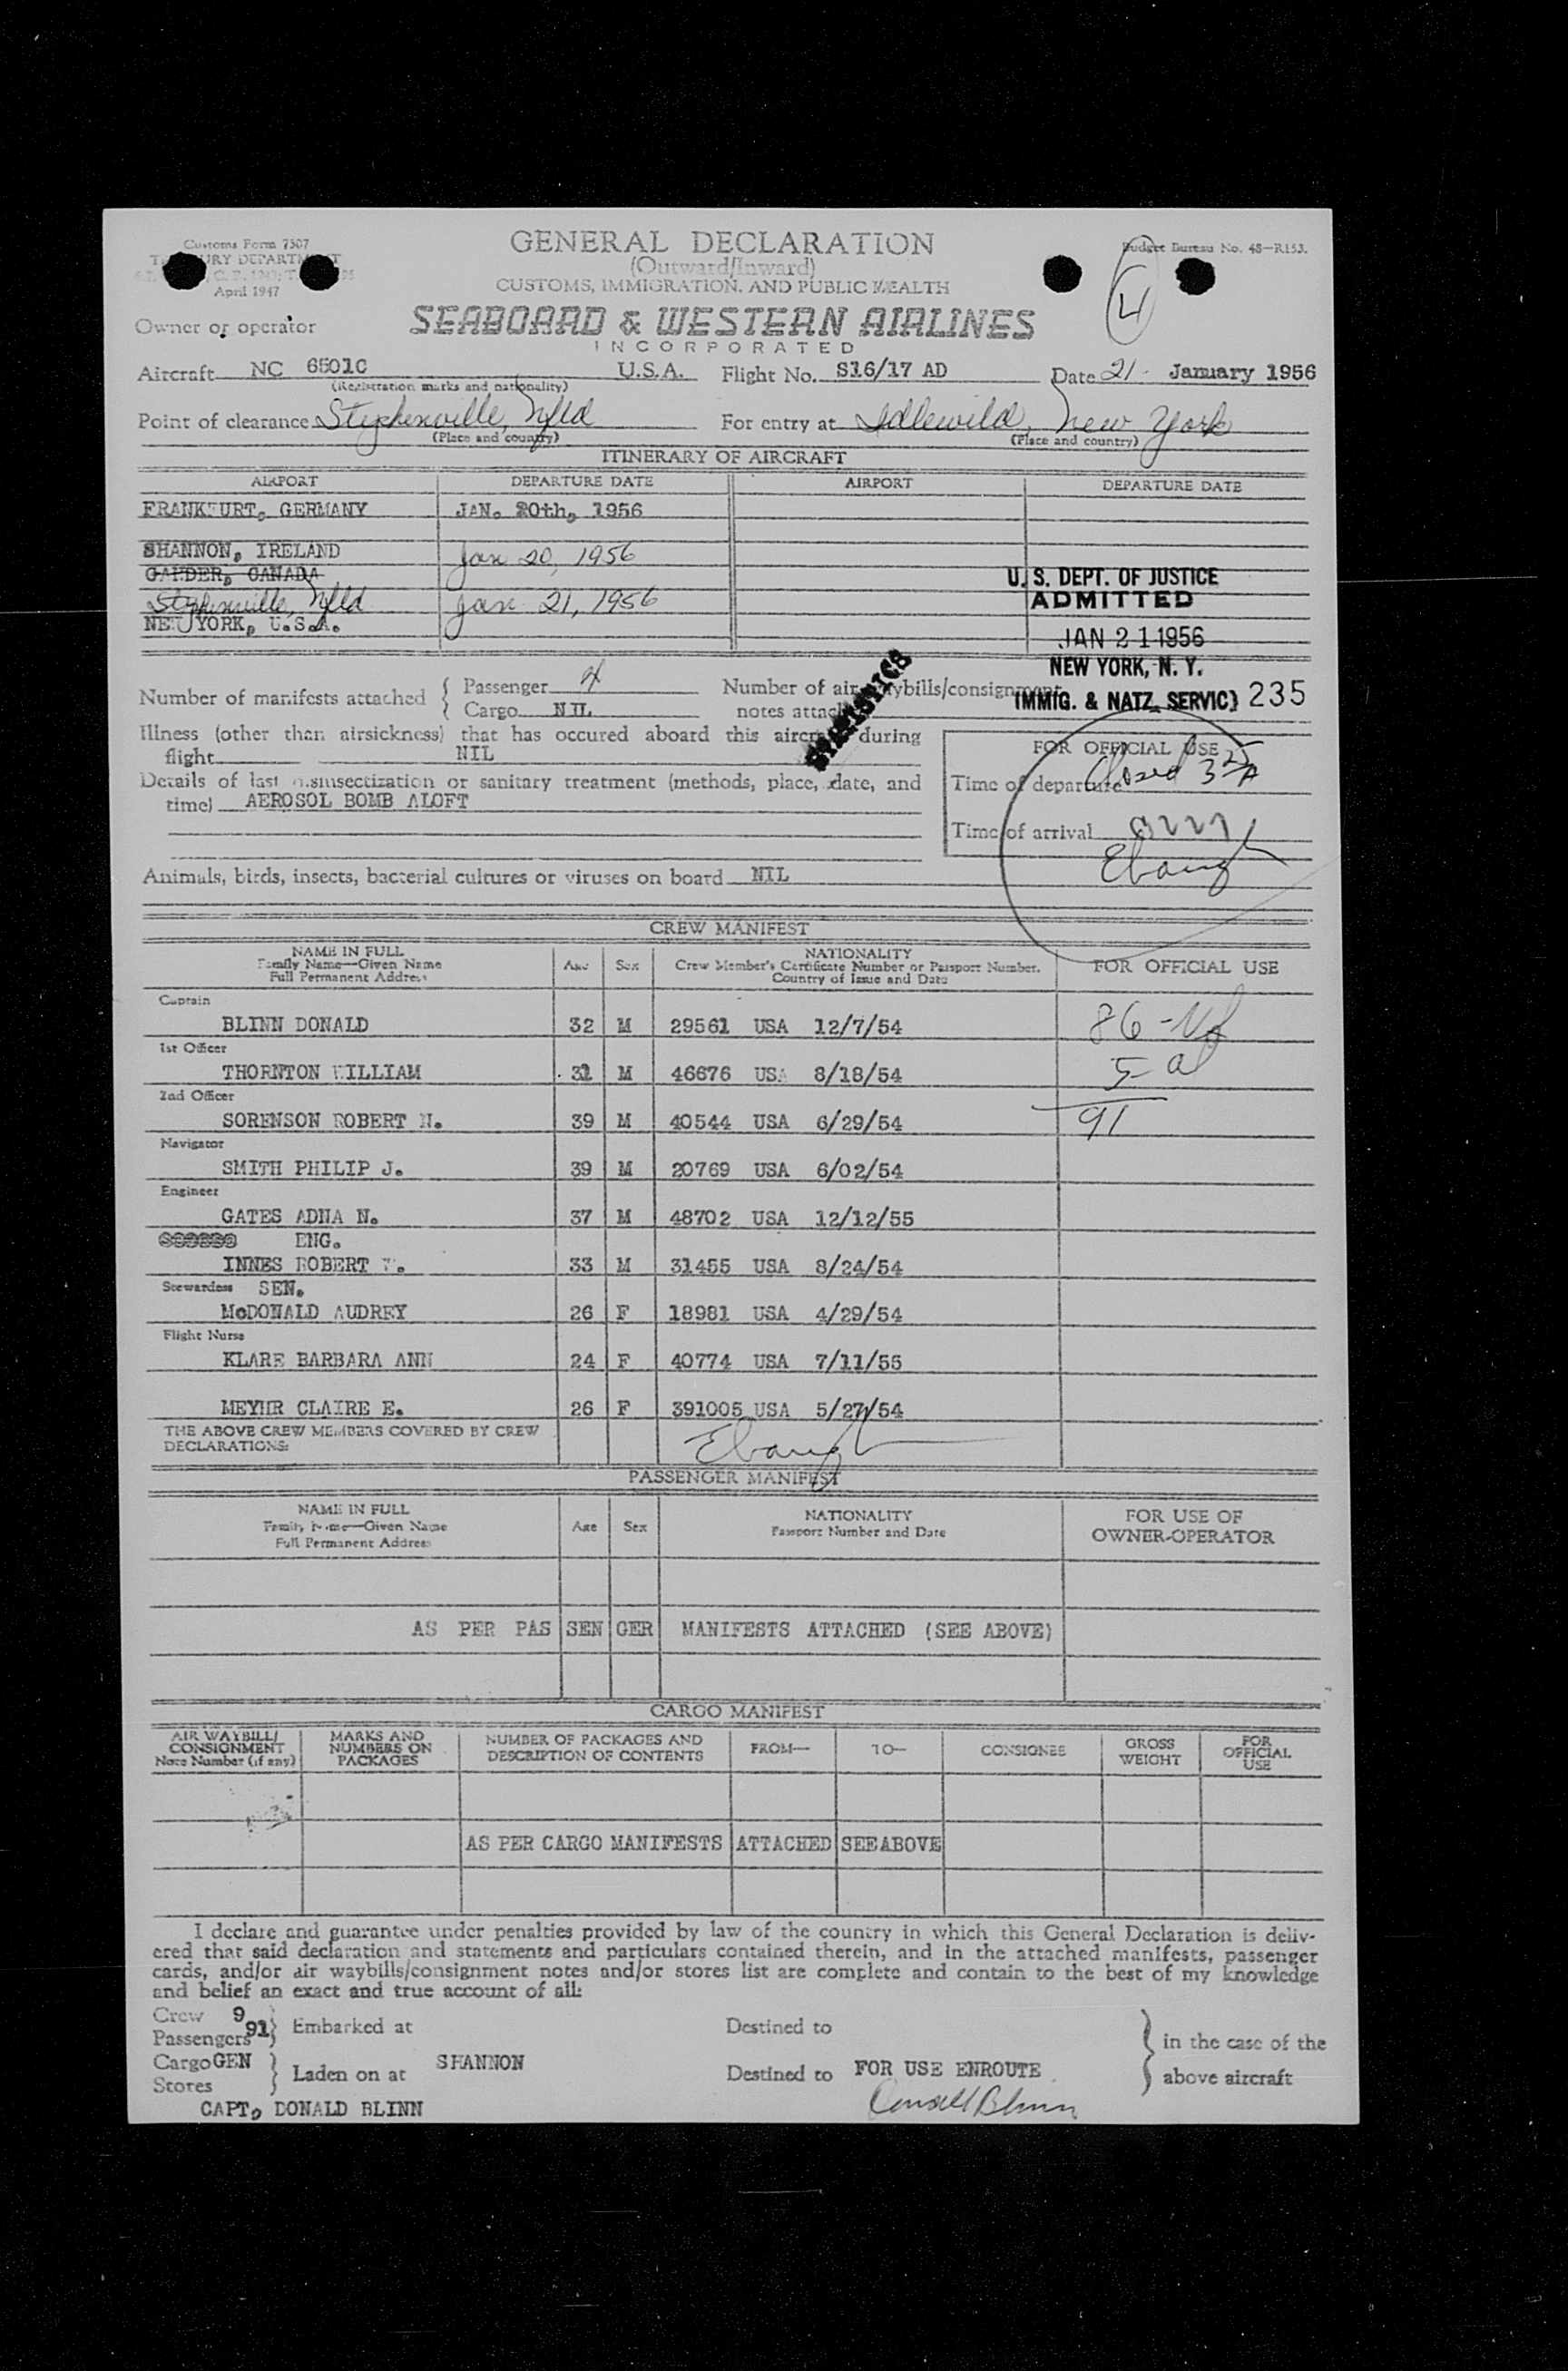 Customs Form 7507
GENERAL DECLARATION
Budget Bureau No. 48-R153.
(Outward/Inward)
April 1947
CUSTOMS, IMMIGRATION, AND PUBLIC HEALTH
4
Owner or operator
SEABOARD & WESTERN AIRLINES
INCORPORATED
Aircraft NC 6501C U.S.A. Flight No. S16/17 AD Date 21 January 1956
(Registration marks and nationality)
Point of clearance Stephenville, Nfld For entry at Idlewild, New York
(Place and country) (Place and country)
ITINERARY OF AIRCRAFT
AIRPORT DEPARTURE DATE AIRPORT DEPARTURE DATE
FRANKFURT, GERMANY JAN. 20th, 1956
SHANNON, IRELAND Jan 20, 1956
GANDER, CANADA
Stephenville, Nfld Jan 21, 1956
NEW YORK, U.S.A.
U. S. DEPT. OF JUSTICE
ADMITTED
JAN 21 1956
NEW YORK, N. Y.
IMMIG. & NATZ. SERVICE 235
Number of manifests attached { Passenger 4 Number of air waybills/consignment
Cargo NIL notes attached
STATISTICS
Illness (other than airsickness) that has occured aboard this aircraft during
flight NIL
Details of last disinsectization or sanitary treatment (methods, place, date, and
time) AEROSOL BOMB ALOFT
FOR OFFICIAL USE
Time of departure Closed 3 25 A
Time of arrival 0227
Ebaugh
Animals, birds, insects, bacterial cultures or viruses on board NIL
CREW MANIFEST
NAME IN FULL
Family Name—Given Name
Full Permanent Address
Age Sex
NATIONALITY
Crew Member's Certificate Number or Passport Number.
Country of Issue and Date
FOR OFFICIAL USE
Captain
BLINN DONALD 32 M 29561 USA 12/7/54 86-
1st Officer
THORNTON WILLIAM 31 M 46676 USA 8/18/54 5-al
2nd Officer
SORENSON ROBERT N. 39 M 40544 USA 6/29/54 91
Navigator
SMITH PHILIP J. 39 M 20769 USA 6/02/54
Engineer
GATES ADNA N. 37 M 48702 USA 12/12/55
ENG.
INNES ROBERT 33 M 31455 USA 8/24/54
Stewardess SEN.
McDONALD AUDREY 26 F 18981 USA 4/29/54
Flight Nurse
KLARE BARBARA ANN 24 F 40774 USA 7/11/55
MEYHR CLAIRE E. 26 F 391005 USA 5/27/54
THE ABOVE CREW MEMBERS COVERED BY CREW
DECLARATIONS:
Ebaugh
PASSENGER MANIFEST
NAME IN FULL
Family Name—Given Name
Full Permanent Address
Age Sex
NATIONALITY
Passport Number and Date
FOR USE OF
OWNER-OPERATOR
AS PER PAS SEN GER MANIFESTS ATTACHED (SEE ABOVE)
CARGO MANIFEST
AIR WAYBILL/
CONSIGNMENT
Note Number (if any)
MARKS AND
NUMBERS ON
PACKAGES
NUMBER OF PACKAGES AND
DESCRIPTION OF CONTENTS
FROM—
TO—
CONSIGNEE
GROSS
WEIGHT
FOR
OFFICIAL
USE
AS PER CARGO MANIFESTS ATTACHED SEE ABOVE
I declare and guarantee under penalties provided by law of the country in which this General Declaration is deliv-
ered that said declaration and statements and particulars contained therein, and in the attached manifests, passenger
cards, and/or air waybills/consignment notes and/or stores list are complete and contain to the best of my knowledge
and belief an exact and true account of all:
Crew 9
Passengers 91 } Embarked at Destined to } in the case of the
Cargo GEN
Stores } Laden on at SHANNON Destined to FOR USE ENROUTE above aircraft
CAPT. DONALD BLINN Donald Blinn